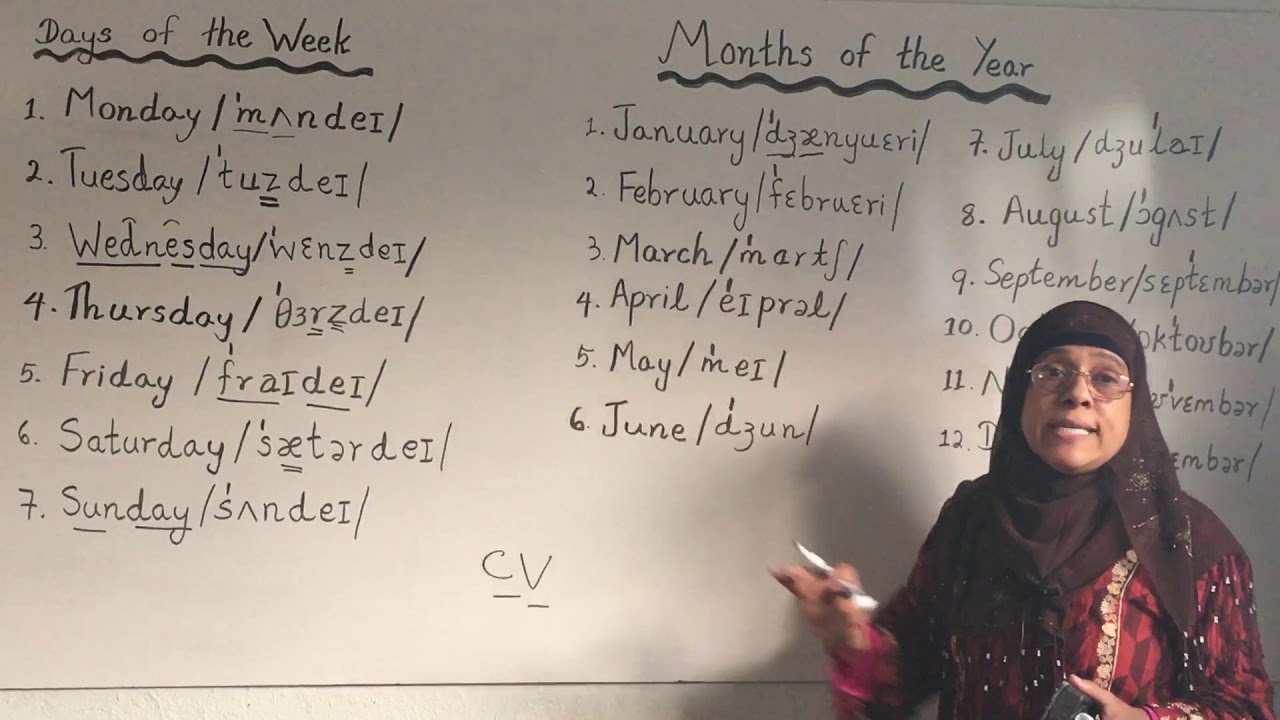 Days of the Week
1. Monday /ˈmʌndeɪ/
2. Tuesday /ˈtuzdeɪ/
3. Wednesday /ˈwɛnzdeɪ/
4. Thursday /ˈθɜrzdeɪ/
5. Friday /ˈfraɪdeɪ/
6. Saturday /ˈsætərdeɪ/
7. Sunday /ˈsʌndeɪ/
CV
Months of the Year
1. January /ˈdʒænyuɛri/
2. February /ˈfɛbruɛri/
3. March /ˈmɑrtʃ/
4. April /ˈeɪprəl/
5. May /ˈmeɪ/
6. June /ˈdʒun/
7. July /dʒuˈlaɪ/
8. August /ˈɔgʌst/
9. September /sɛpˈtɛmbər/
10. O
11. N
12. D